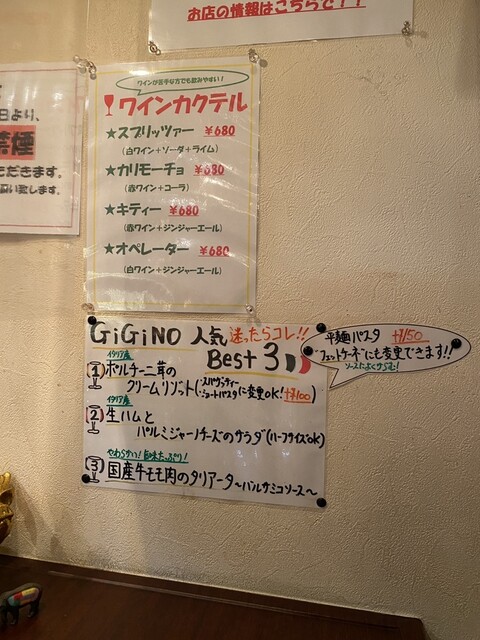 お店の情報はこちらで！！
日より、
禁煙
ただきます。
願い致します。
ワインが苦手な方でも飲みやすい！
ワインカクテル
★スプリッツァー ￥680
（白ワイン＋ソーダ＋ライム）
★カリモーチョ ￥680
（赤ワイン＋コーラ）
★キティー ￥680
（赤ワイン＋ジンジャーエール）
★オペレーター ￥680
（白ワイン＋ジンジャーエール）
GiGiNO 人気 迷ったらコレ!!
Best 3
イタリア産
1 ポルチーニ茸の
クリームリゾット(スパゲッティー
ショートパスタに変更OK! +¥100)
イタリア産
2 生ハムと
パルミジャーノチーズのサラダ(ハーフサイズOK)
やわらかい！旨味たっぷり！
3 国産牛モモ肉のタリアータ〜バルサミコソース〜
平麺パスタ +¥150
"フェットチーネ"にも変更できます!!
ソースとよくからむ!